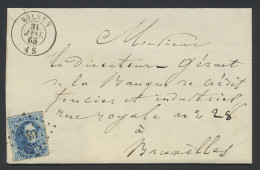 31
65
4 S
Monsieur
le directeur Gérant
de la Banque de crédit
foncier et industriel
rue royale nº 28
à
Bruxelles